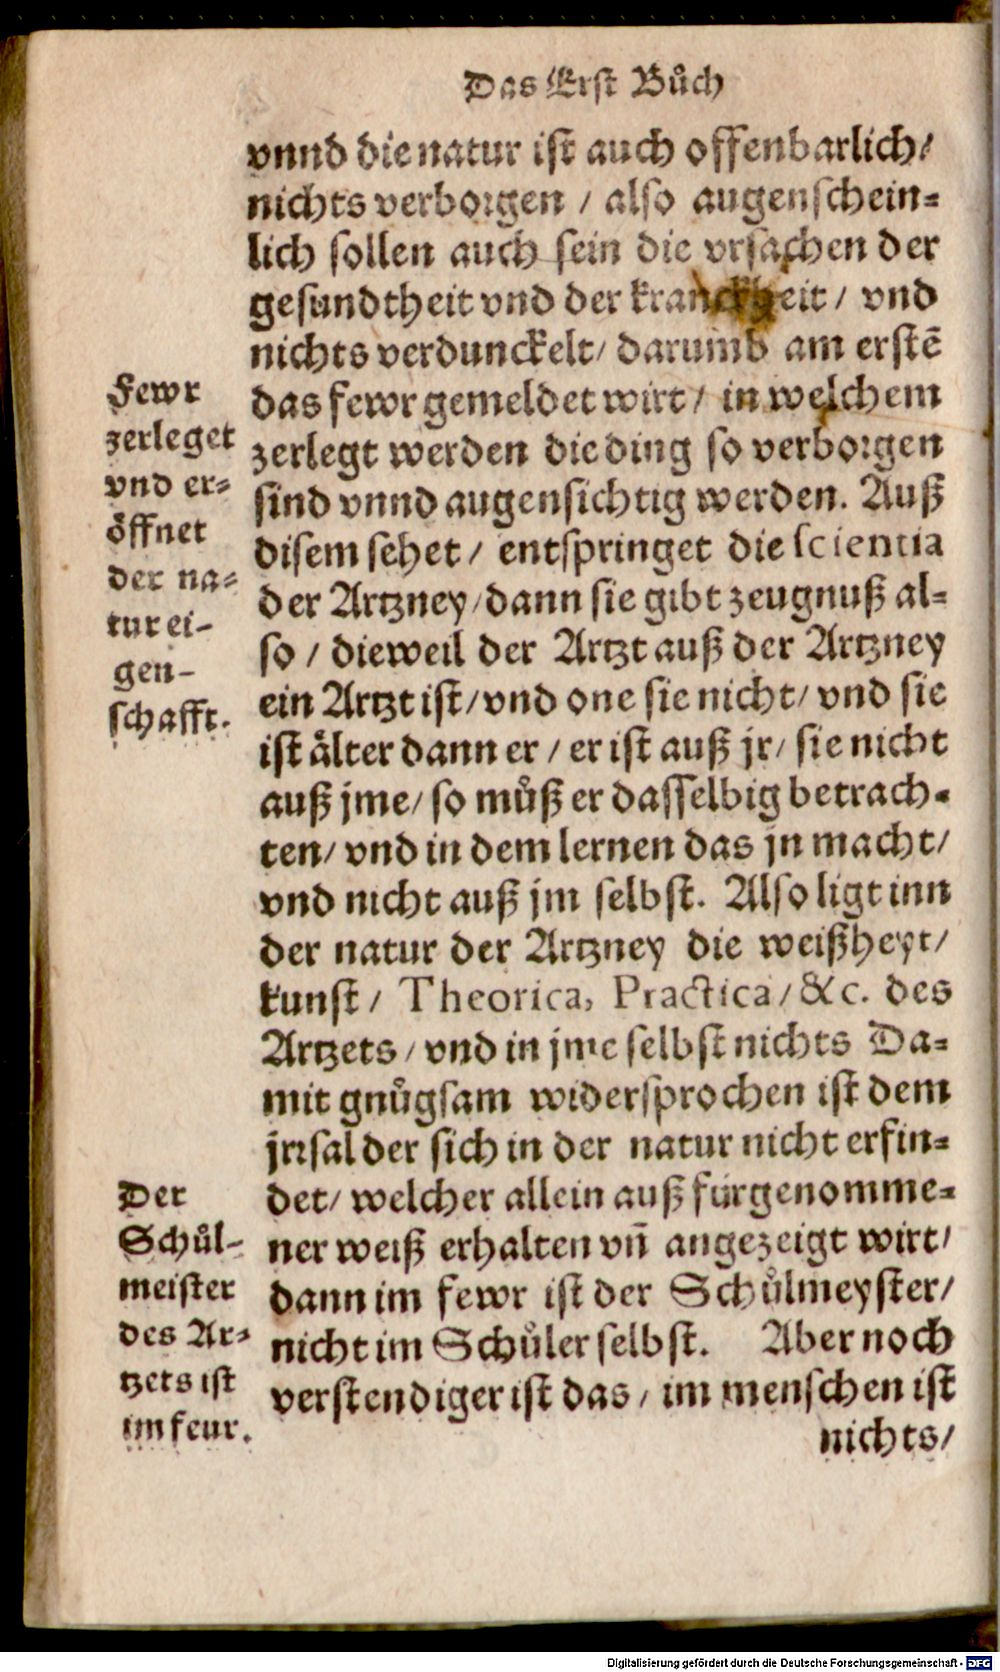 Das Erst Bůch
vnnd die natur ist auch offenbarlich/
nichts verborgen / also augenschein-
lich sollen auch sein die vrsachen der
gesundtheit vnd der kranckheit / vnd
nichts verdunckelt/ darumb am erstē
das fewr gemeldet wirt / in welchem
zerlegt werden die ding so verborgen
sind vnnd augensichtig werden. Auß
disem sehet / entspringet die scientia
der Artzney/dann sie gibt zeugnuß al-
so / dieweil der Artzt auß der Artzney
ein Artzt ist/vnd one sie nicht/ vnd sie
ist ålter dann er / er ist auß jr/ sie nicht
auß jme/ so můß er dasselbig betrach-
ten/ vnd in dem lernen das jn macht/
vnd nicht auß jm selbst. Also ligt inn
der natur der Artzney die weißheyt/
kunst / Theorica, Practica/&c. des
Artzets / vnd in jme selbst nichts Da-
mit gnůgsam widersprochen ist dem
jrrsal der sich in der natur nicht erfin-
det/ welcher allein auß fürgenomme-
ner weiß erhalten vñ angezeigt wirt/
dann im fewr ist der Schůlmeyster/
nicht im Schůler selbst. Aber noch
verstendiger ist das / im menschen ist
nichts/
Fewr
zerleget
vnd er-
öffnet
der na-
tur ei-
gen-
schafft.
Der
Schůl-
meister
des Ar-
tzets ist
im feur.
Digitalisierung gefördert durch die Deutsche Forschungsgemeinschaft - DFG